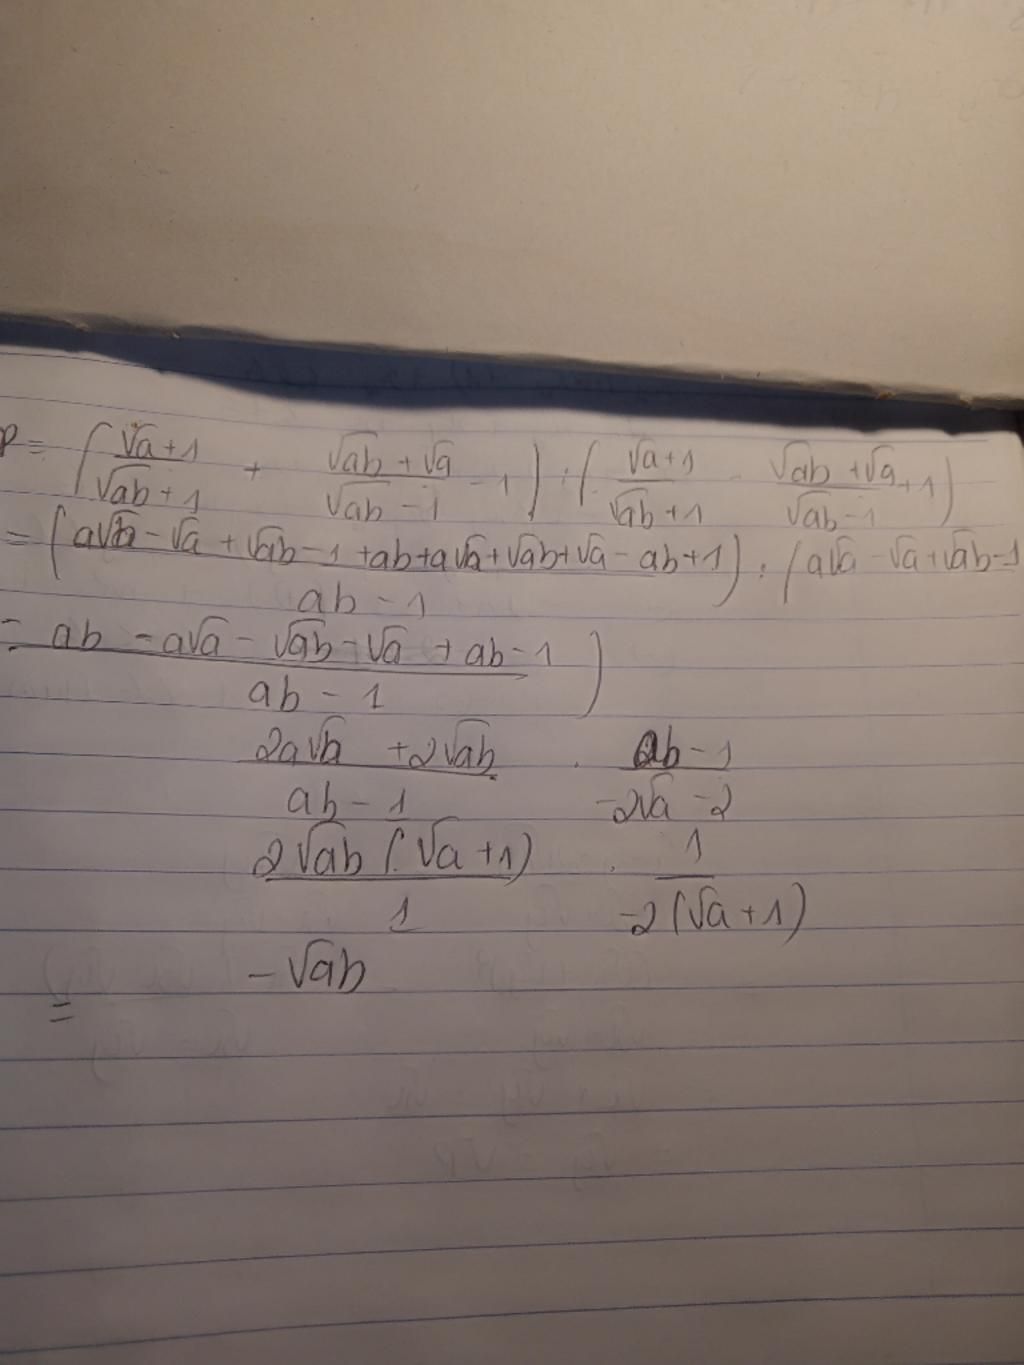 P = (√a+1/√ab+1 + √ab+√a/√ab-1 - 1) : (√a+1/√ab+1 - √ab+√a/√ab-1 + 1)
= (a√b - √a + √ab - 1 + ab + a√a + √ab + √a - ab + 1/ab - 1) : (a√a - √a + √ab - 1
= ab - a√a - √ab - √a + ab - 1/ab - 1)
2a√b + 2√ab/ab - 1 . ab - 1/-2√a - 2
2√ab (√a + 1)/1 . 1/-2(√a + 1)
- √ab
=